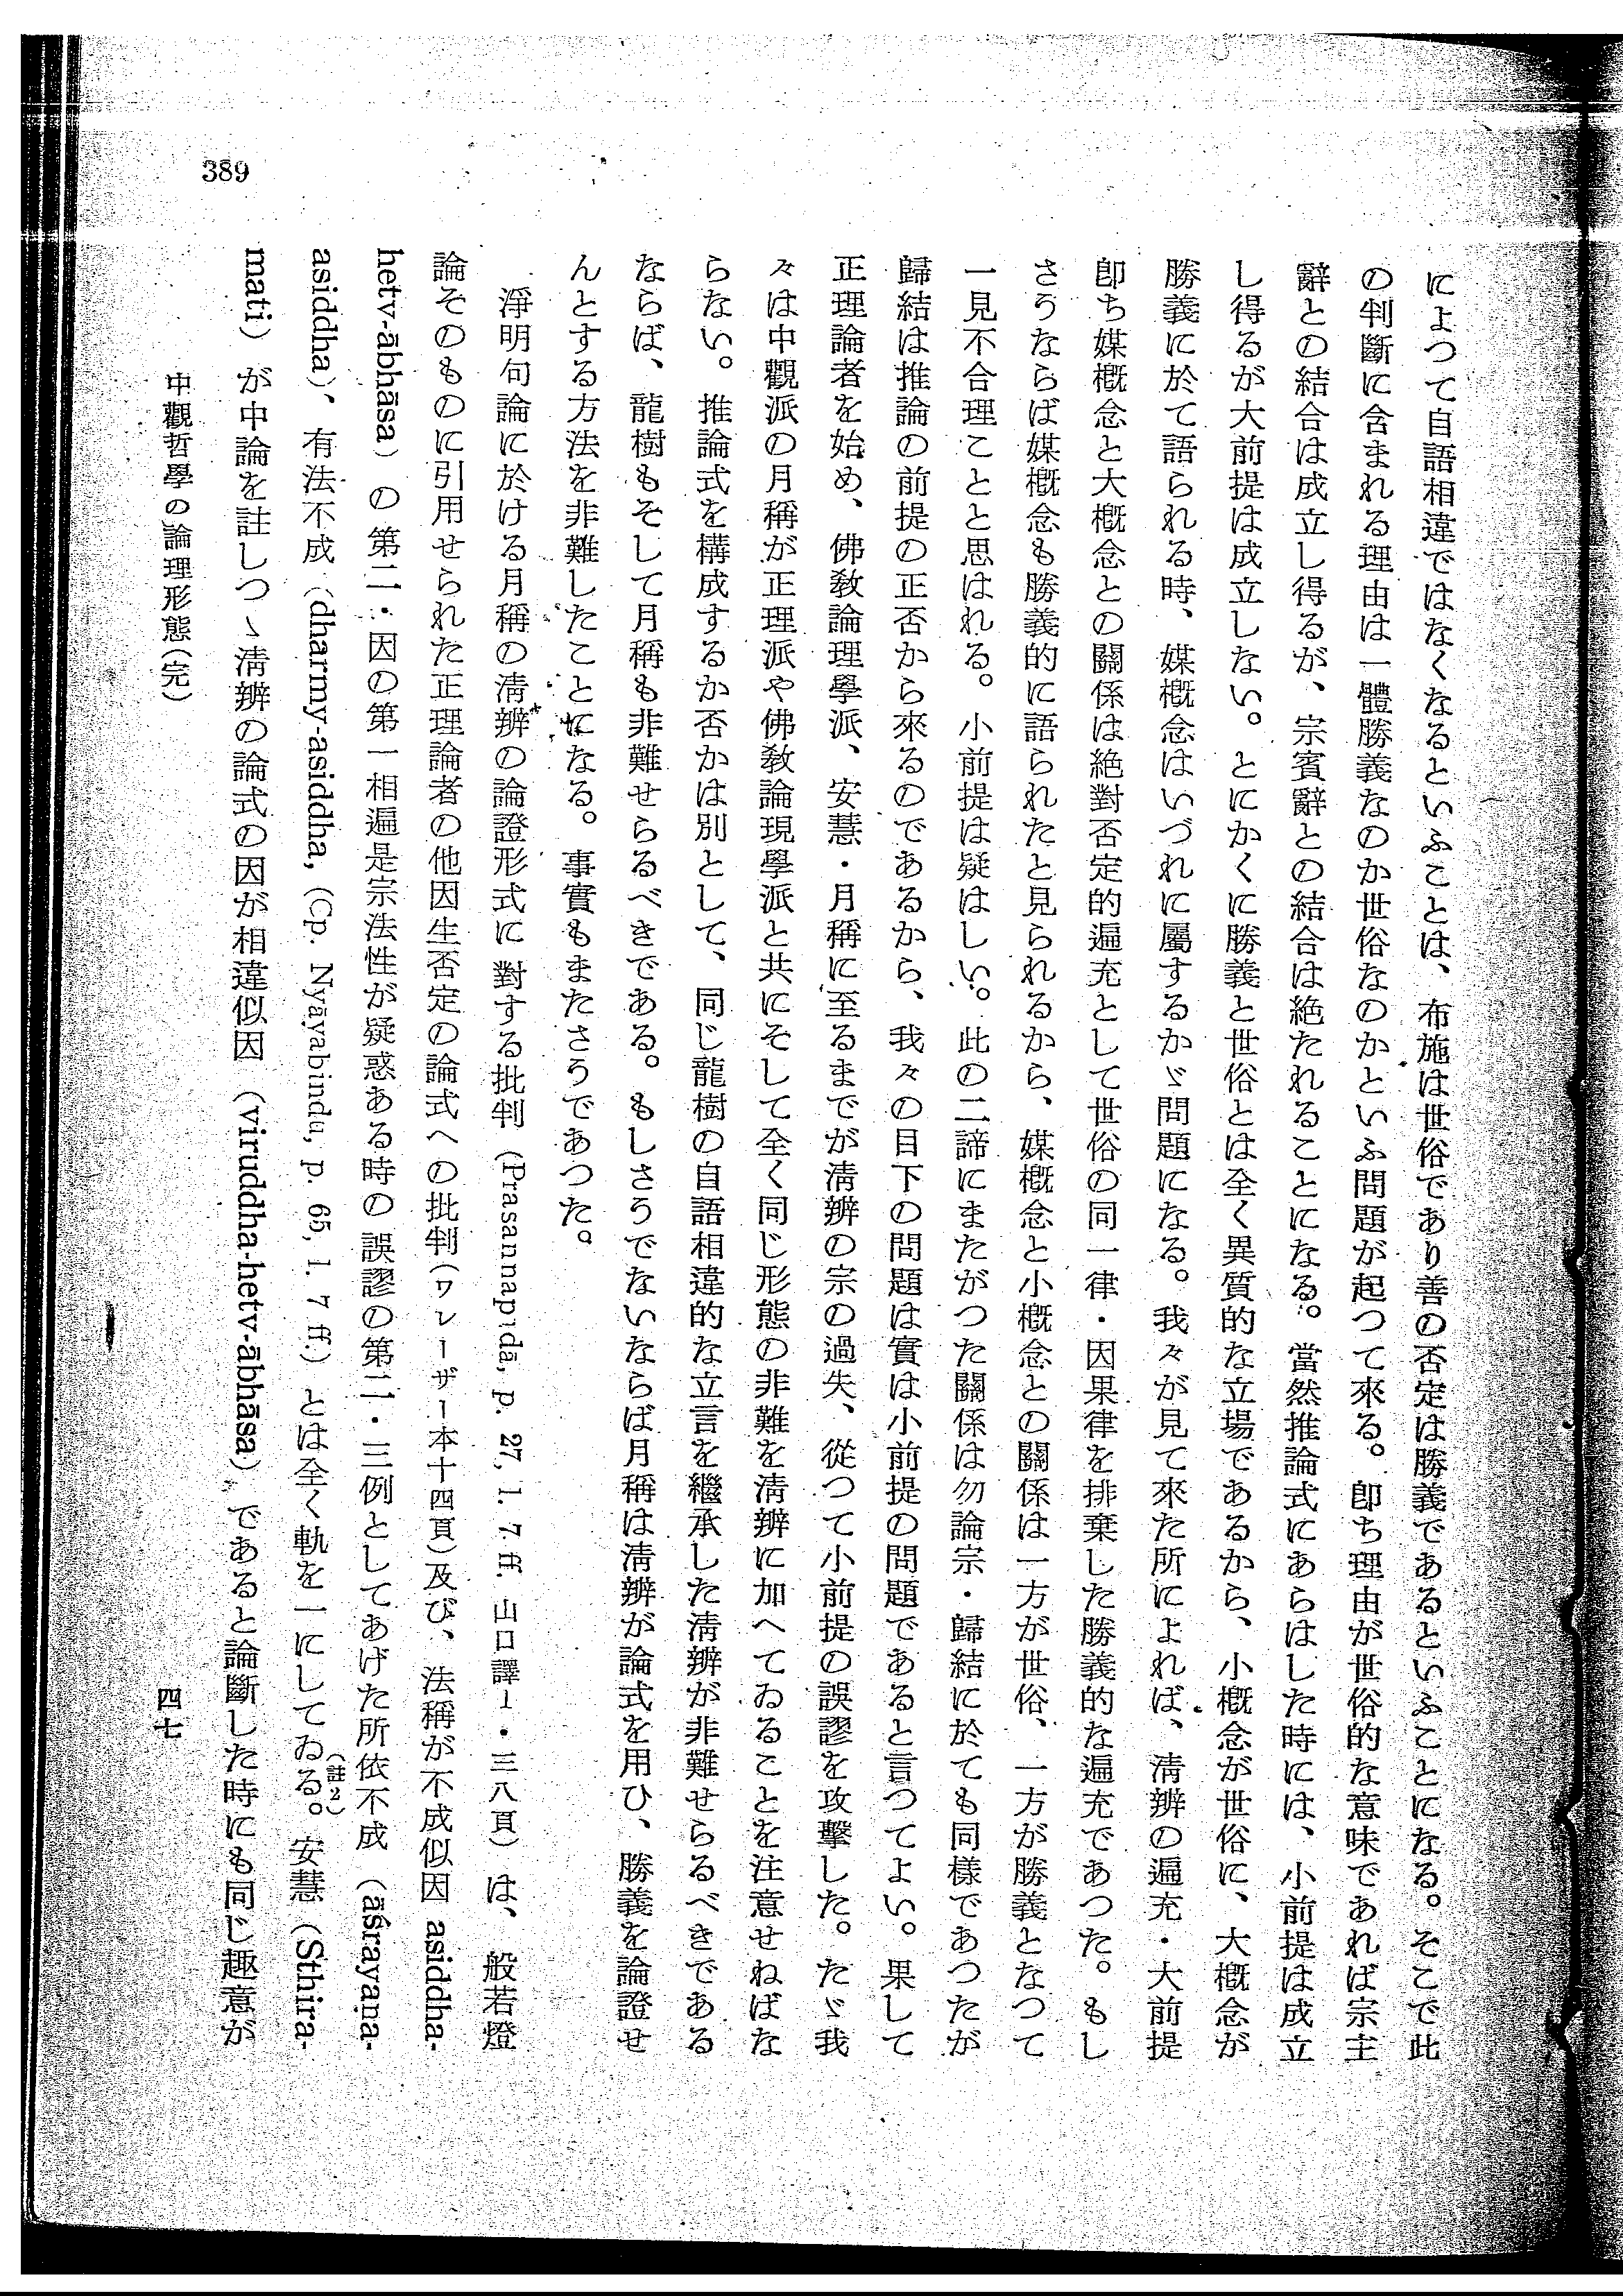 によつて自語相違ではなくなるといふことは、布施は世俗であり善の否定は勝義であるといふことになる。そこで此
の判斷に含まれる理由は一體勝義なのか世俗なのかといふ問題が起つて來る。卽ち理由が世俗的な意味であれば宗主
辭との結合は成立し得るが、宗賓辭との結合は絶たれることになる。當然推論式にあらはした時には、小前提は成立
し得るが大前提は成立しない。とにかくに勝義と世俗とは全く異質的な立場であるから、小概念が世俗に、大概念が
勝義に於て語られる時、媒概念はいづれに屬するかゞ問題になる。我々が見て來た所によれば、淸辨の遍充・大前提
卽ち媒概念と大概念との關係は絶對否定的遍充として世俗の同一律・因果律を排棄した勝義的な遍充であつた。もし
さうならば媒概念も勝義的に語られたと見られるから、媒概念と小概念との關係は一方が世俗、一方が勝義となつて
一見不合理ことと思はれる。小前提は疑はしい。此の二諦にまたがつた關係は勿論宗・歸結に於ても同樣であつたが
歸結は推論の前提の正否から來るのであるから、我々の目下の問題は實は小前提の問題であると言つてよい。果して
正理論者を始め、佛敎論理學派、安慧・月稱に至るまでが淸辨の宗の過失、從つて小前提の誤謬を攻擊した。たゞ我
々は中觀派の月稱が正理派や佛敎論現學派と共にそして全く同じ形態の非難を淸辨に加へてゐることを注意せねばな
らない。推論式を構成するか否かは別として、同じ龍樹の自語相違的な立言を繼承した淸辨が非難せらるべきである
ならば、龍樹もそして月稱も非難せらるべきである。もしさうでないならば月稱は淸辨が論式を用ひ、勝義を論證せ
んとする方法を非難したことになる。事實もまたさうであつた。
淨明句論に於ける月稱の淸辨の論證形式に對する批判（Prasannapıdā, p. 27, l. 7 ff. 山口譯Ⅰ・三八頁）は、般若燈
論そのものに引用せられた正理論者の他因生否定の論式への批判（ワレーザー本十四頁）及び、法稱が不成似因 asiddha-
hetv-ābhāsa）の第二・因の第一相遍是宗法性が疑惑ある時の誤謬の第二・三例としてあげた所依不成（āśrayaṇa-
asiddha）、有法不成（dharmy-asiddha,（Cp. Nyāyabindu, p. 65, l. 7 ff.）とは全く軌を一にしてゐる。（註2）安慧（Sthira-
mati）が中論を註しつゝ淸辨の論式の因が相違似因（viruddha-hetv-ābhāsa）であると論斷した時にも同じ趣意が
中觀哲學の論理形態（完）
四七
389